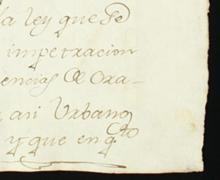 la ley que se
impetracion
encias de Ora-
asi Urbano
y que en q.to